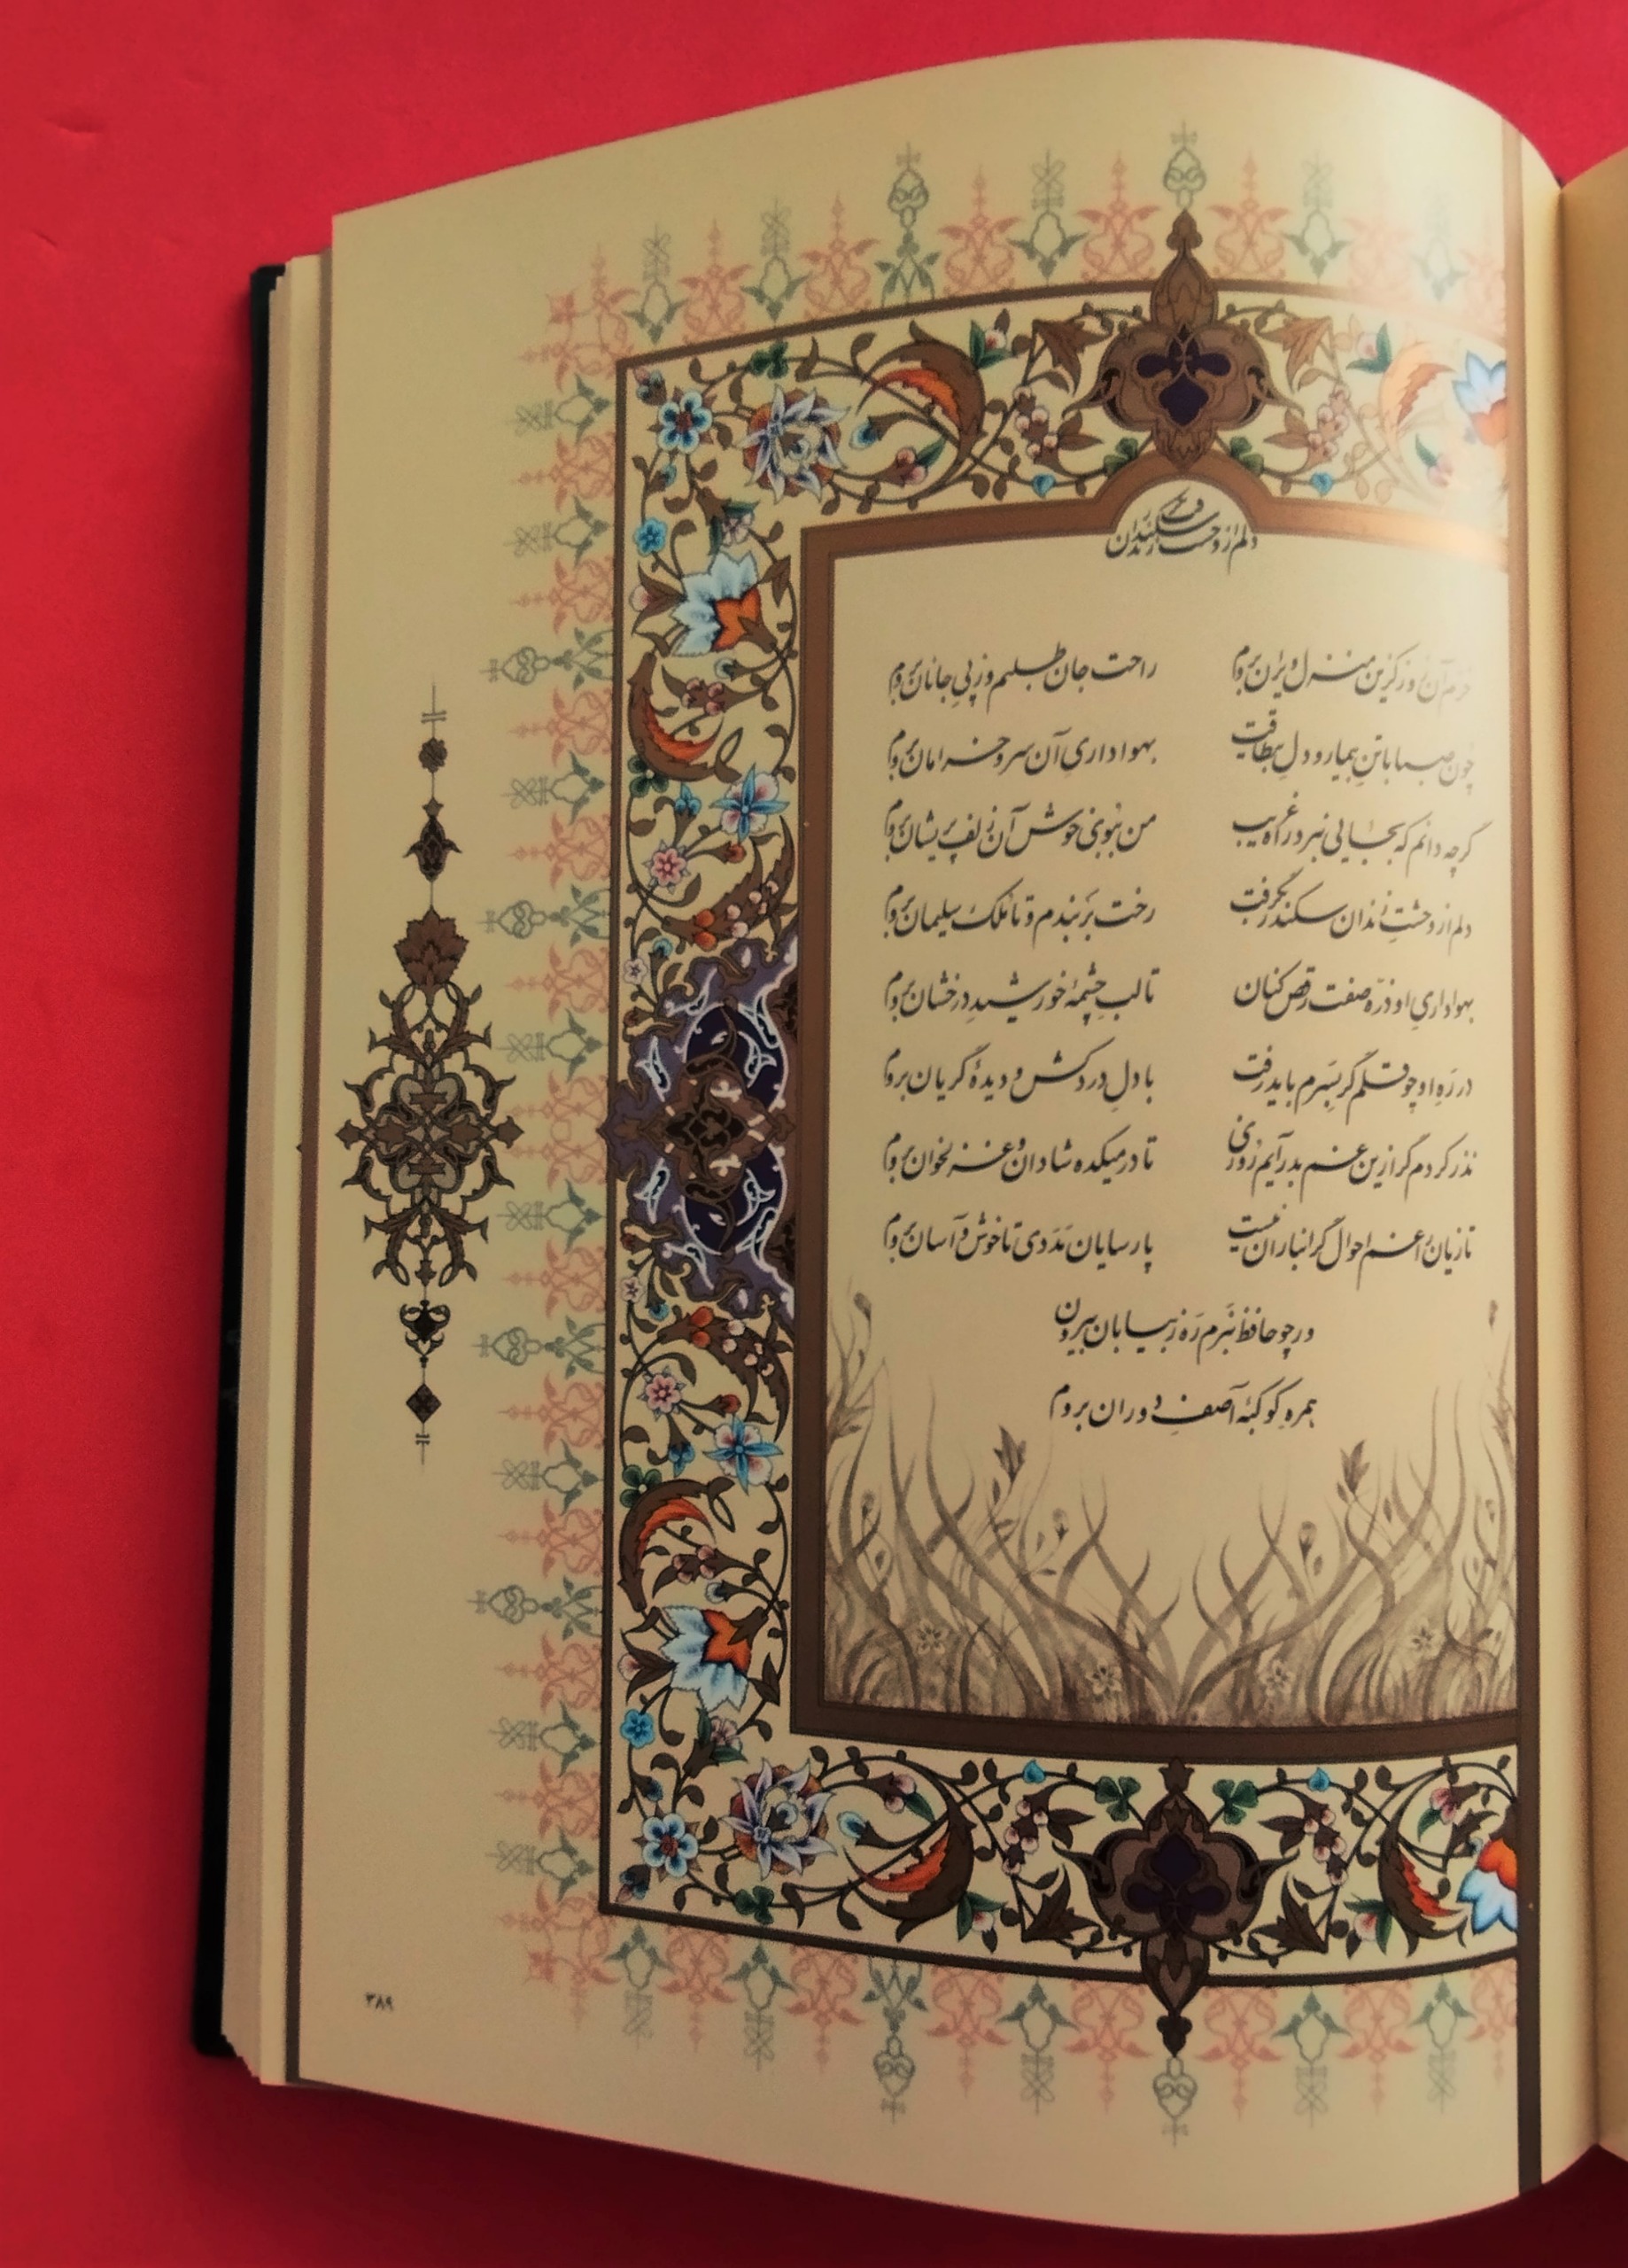 دلم از وحشت زندان سکندر بگرفت
خرّم آن روز کزین منزل ویران بروم راحت جان طلبم وز پیِ جانان بروم
چون صبا با تنِ بیمار و دلِ بیطاقت بهواداریِ آن سرو خرامان بروم
گرچه دانم که بجایی نبرد راه غریب من ببوی خوش آن زلف پریشان بروم
دلم از وحشتِ زندان سکندر بگرفت رخت بَربندم و تا مُلک سلیمان بروم
بهواداریِ او ذرّه صفت رقص کنان تا لبِ چشمهٔ خورشیدِ درخشان بروم
در رَهِ او چو قلم گر بسَرم باید رفت با دلِ دردکش و دیدهٔ گریان بروم
نذر کردم گر ازین غم بدرآیم روزی تا در میکده شادان و غزلخوان بروم
تازیان را غم احوال گرانباران نیست پارسایان مَدَدی تا خوش و آسان بروم
ور چو حافظ نَبرم رَه ز بیابان بیرون
همرهِ کوکبهٔ آصفِ دوران بروم
۳۸۹